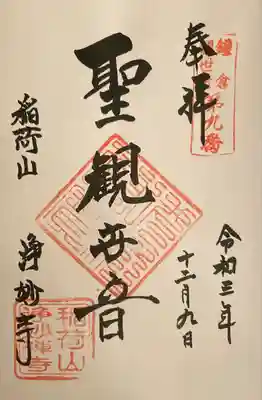 鎌倉
第九番
奉拝
令和三年
十二月九日
聖観世音
稲荷山
浄妙寺
稲荷山
浄妙禅寺